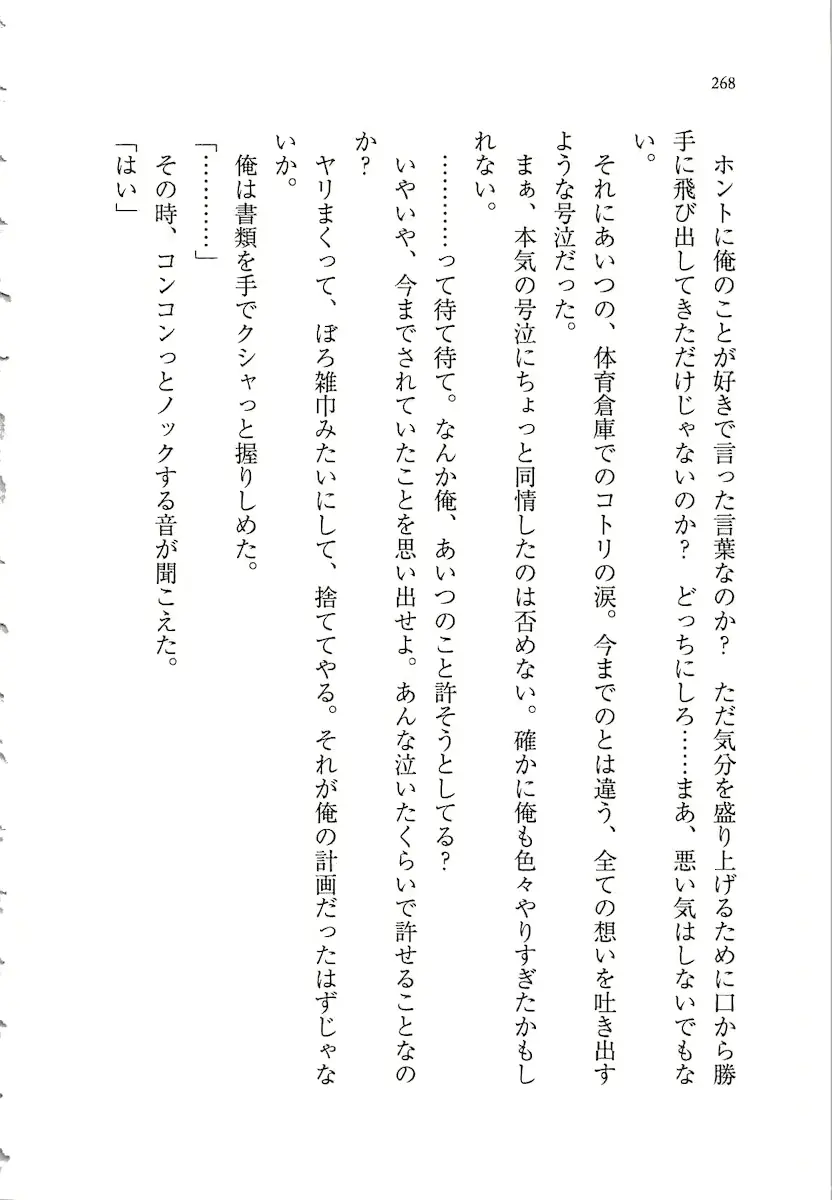 268
　ホントに俺のことが好きで言った言葉なのか？　ただ気分を盛り上げるために口から勝
手に飛び出してきただけじゃないのか？　どっちにしろ……まあ、悪い気はしないでもな
い。
　それにあいつの、体育倉庫でのコトリの涙。今までのとは違う、全ての想いを吐き出す
ような号泣だった。
　まぁ、本気の号泣にちょっと同情したのは否めない。確かに俺も色々やりすぎたかもし
れない。
　…………って待て待て。なんか俺、あいつのこと許そうとしてる？
　いやいや、今までされていたことを思い出せよ。あんな泣いたくらいで許せることなの
か？
　ヤリまくって、ぼろ雑巾みたいにして、捨ててやる。それが俺の計画だったはずじゃな
いか。
　俺は書類を手でクシャっと握りしめた。
「…………」
　その時、コンコンっとノックする音が聞こえた。
「はい」